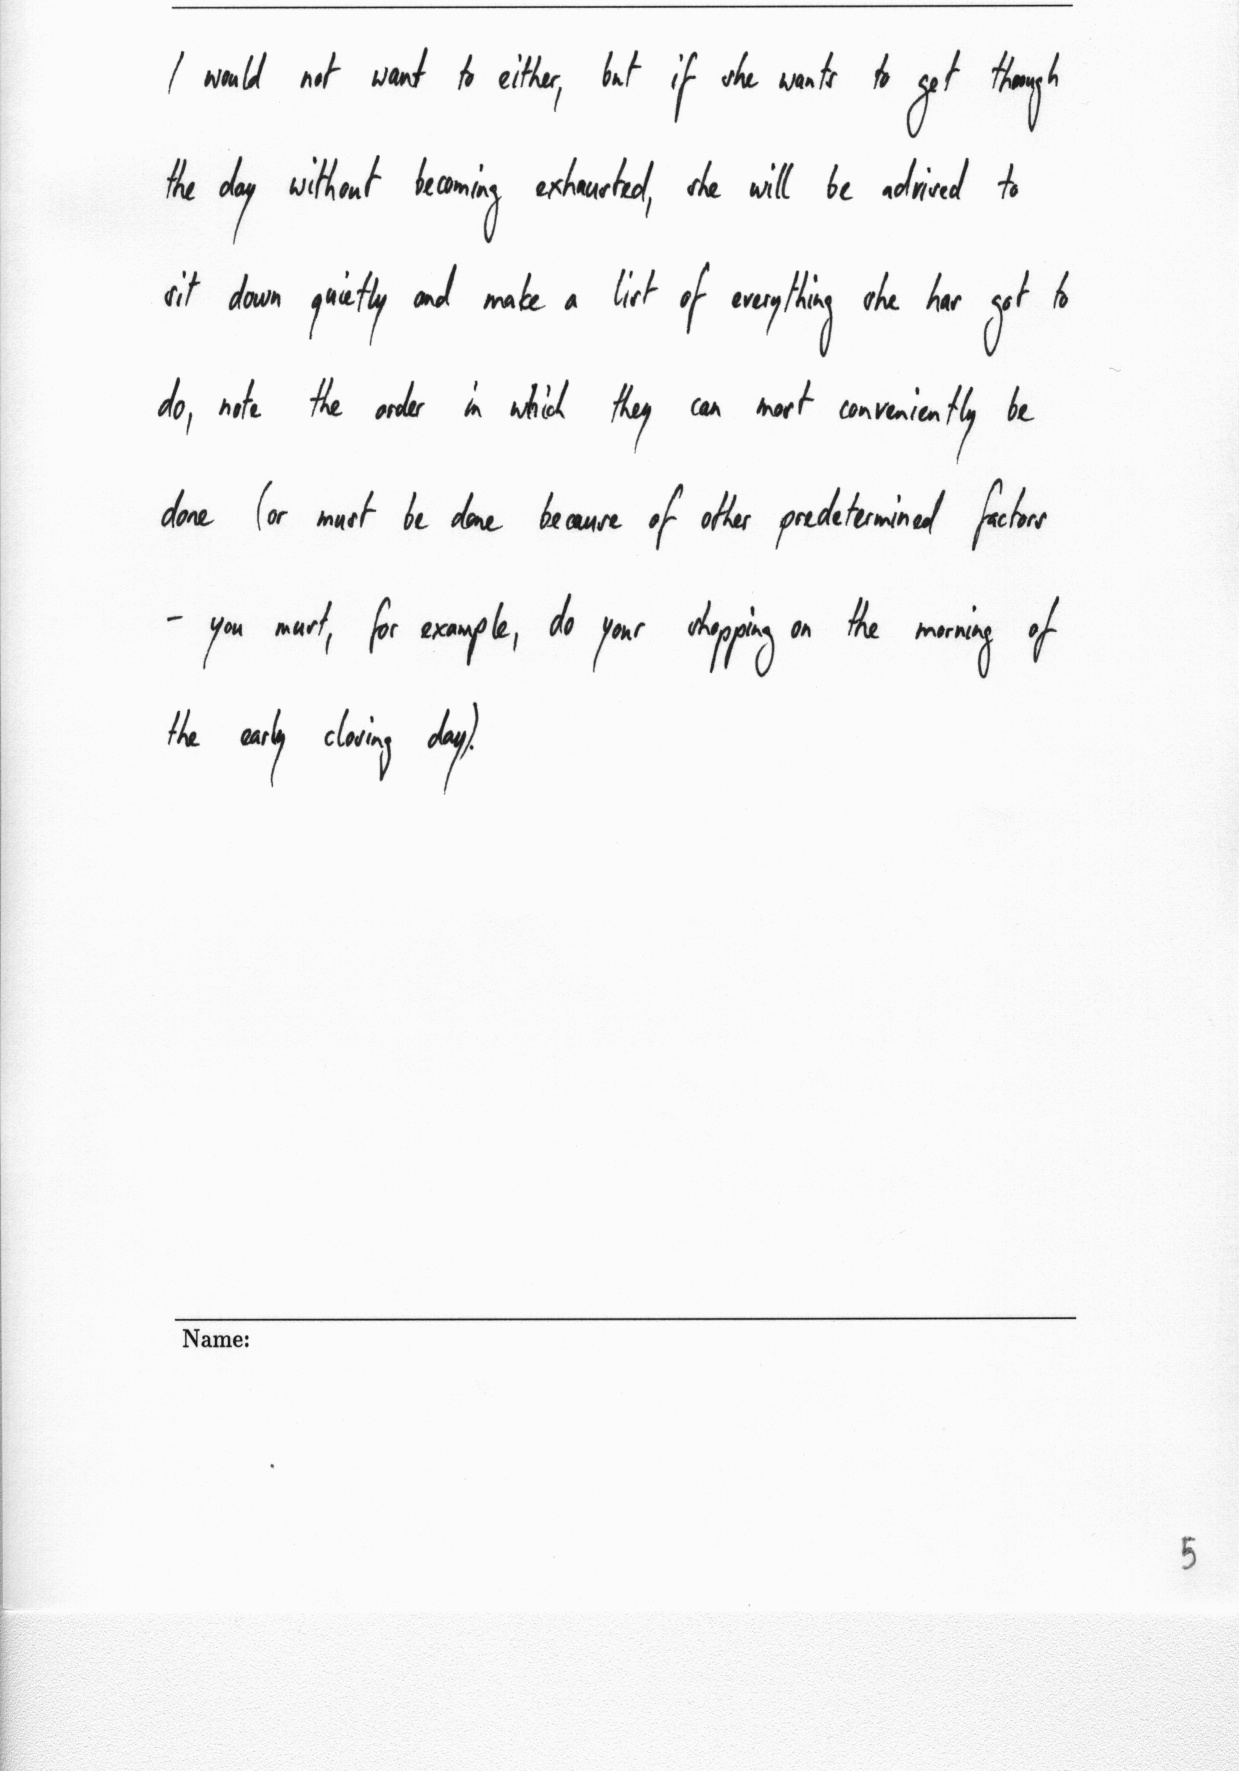 I would not want to either, but if she wants to get through
the day without becoming exhausted, she will be advised to
sit down quietly and make a list of everything she has got to
do, note the order in which they can most conveniently be
done (or must be done because of other predetermined factors
- you must, for example, do your shopping on the morning of
the early closing day).
Name:
5